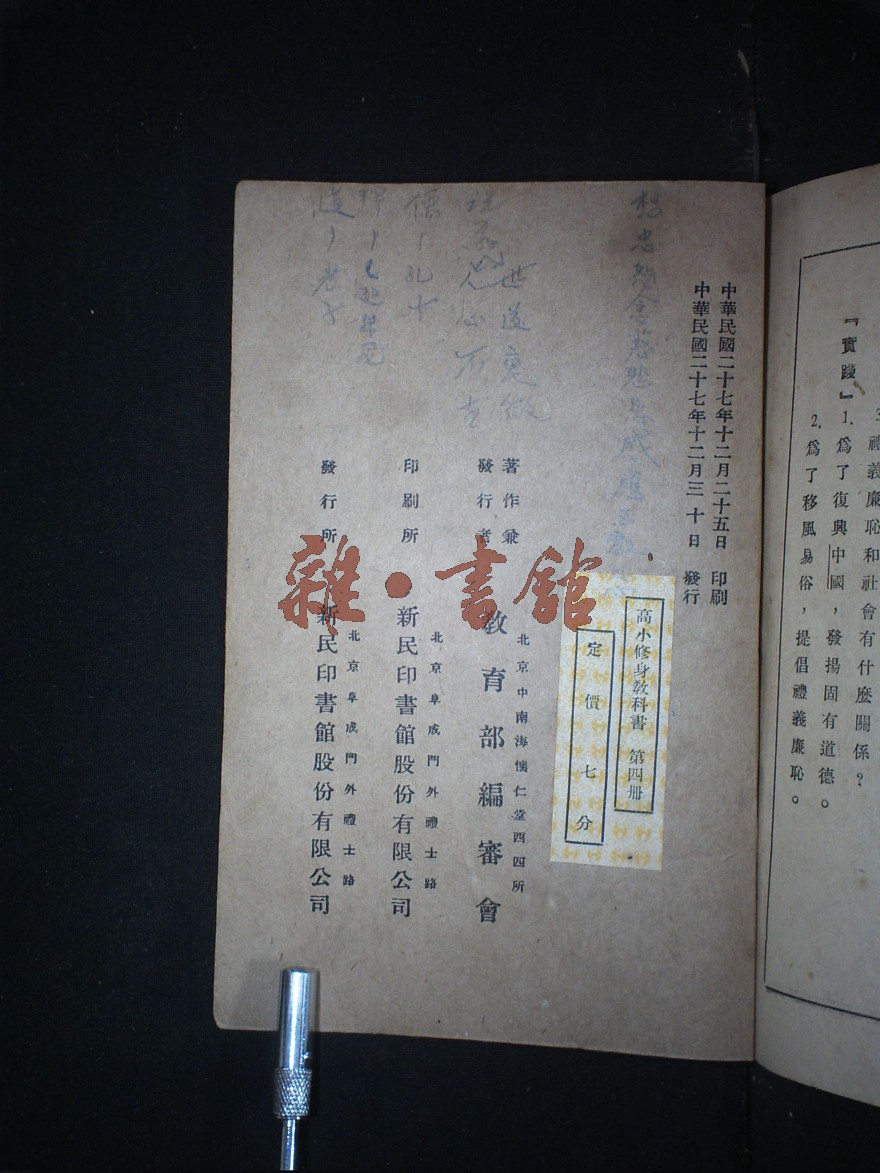 3. 禮義廉恥和社會有什麼關係？
『實踐』1. 爲了復興中國，發揚固有道德。
2. 爲了移風易俗，提倡禮義廉恥。
中華民國二十七年十二月二十五日 印刷
中華民國二十七年十二月三十日 發行
高小修身教科書 第四册
定價七分
著作兼
發行者
北京中南海懷仁堂西四所
教育部編審會
印刷所
北京阜成門外禮士路
新民印書館股份有限公司
發行所
北京阜成門外禮士路
新民印書館股份有限公司
世道衰微
人心不古
儒 孔子
道 老子
雜·書館